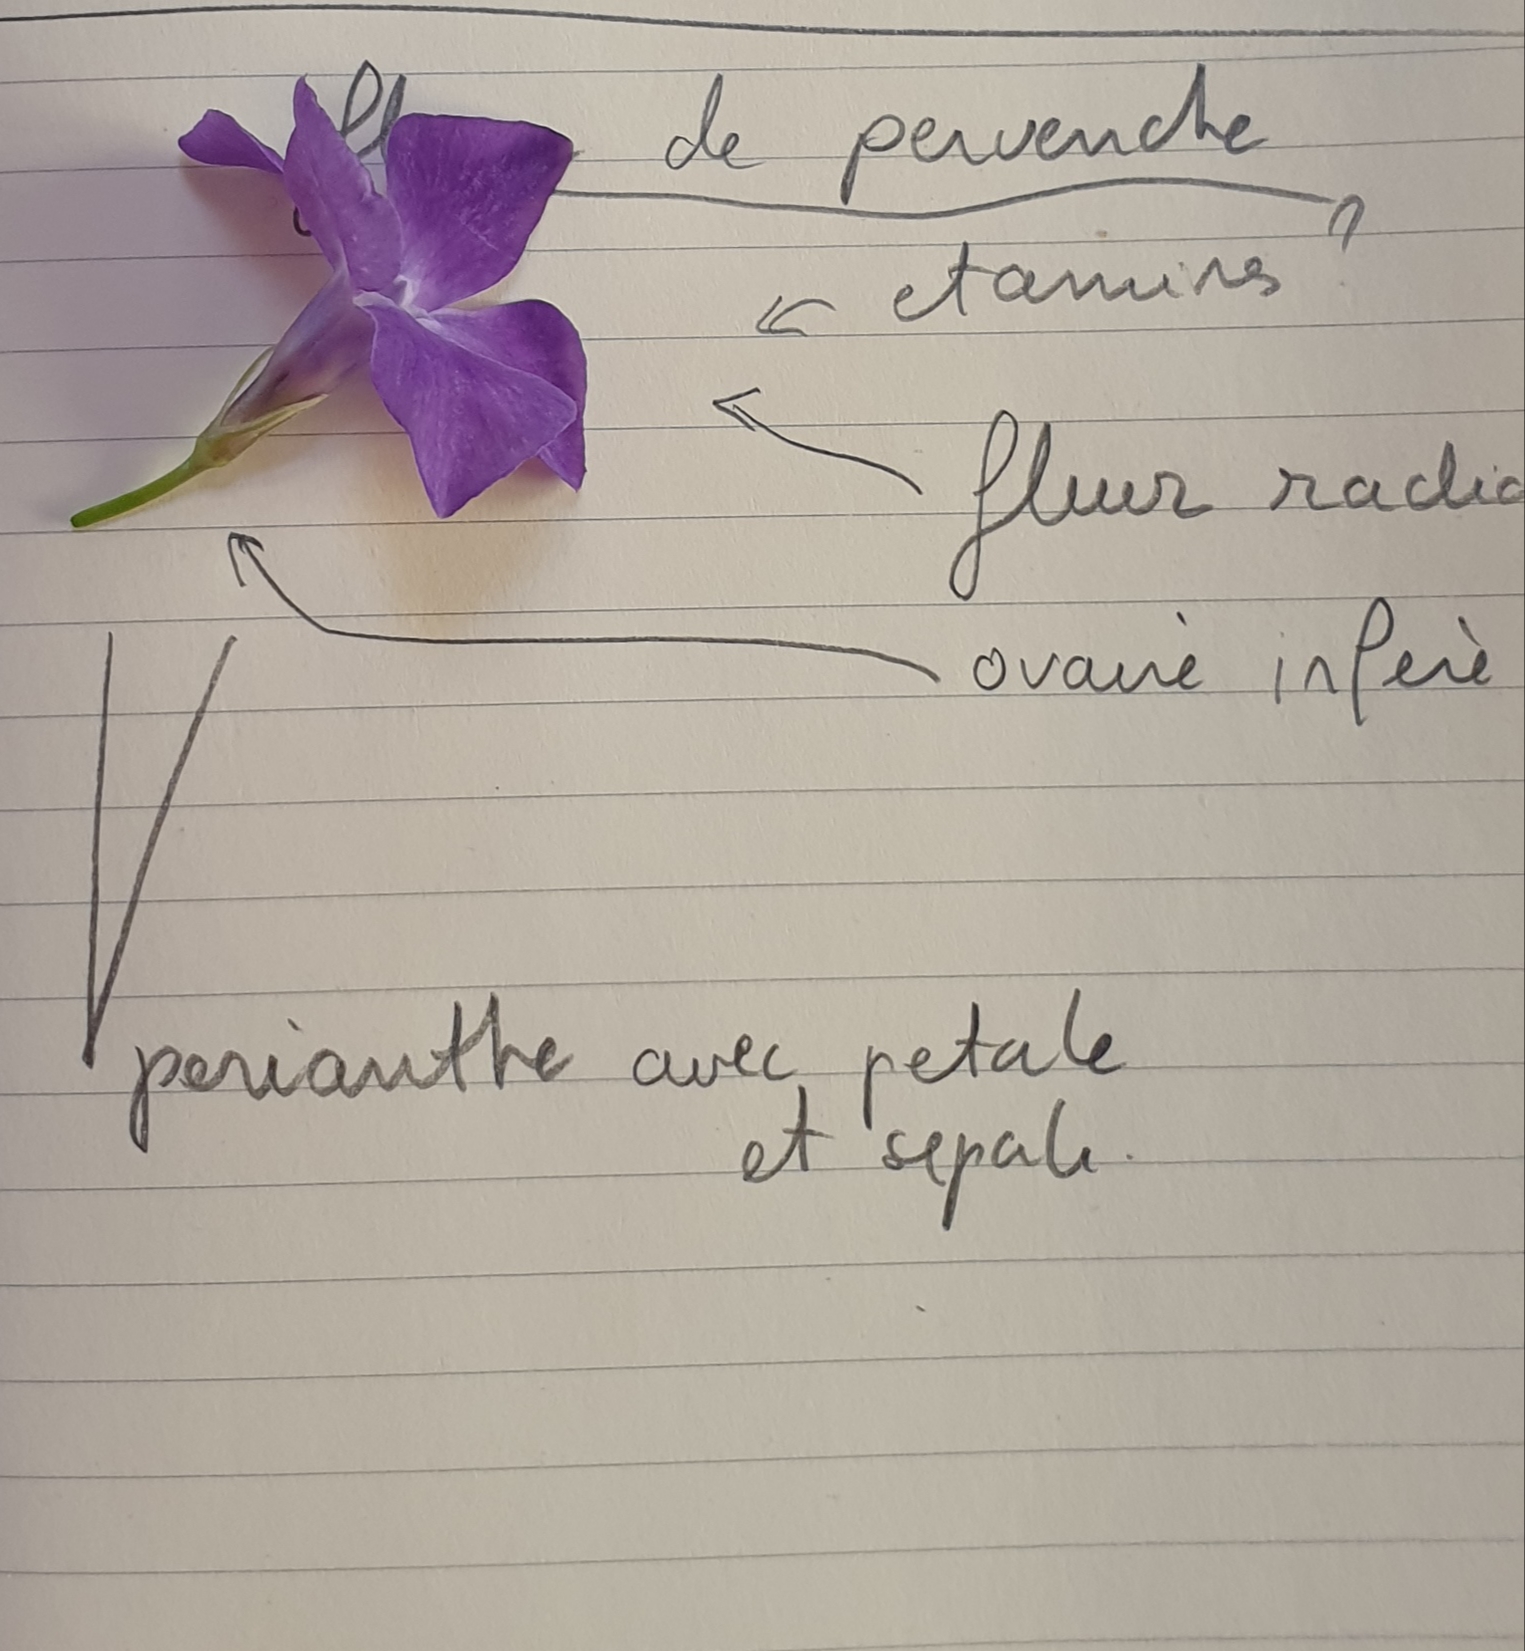 de pervenche
etamines
fleur radia
ovaire infere
perianthe avec petale
et sepale.